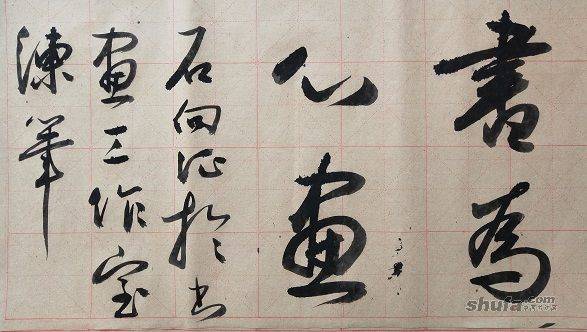 書為
心畫
石向征於書
畫工作室
练筆
shufa.com